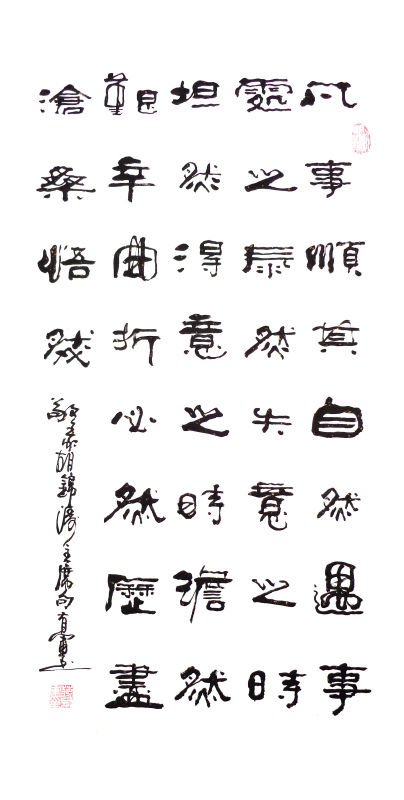 凡事順其自然遇事
處之泰然失意之時
坦然得意之時澹然
艱辛曲折必然歷盡
滄桑悟然
敬录胡錦濤主席句